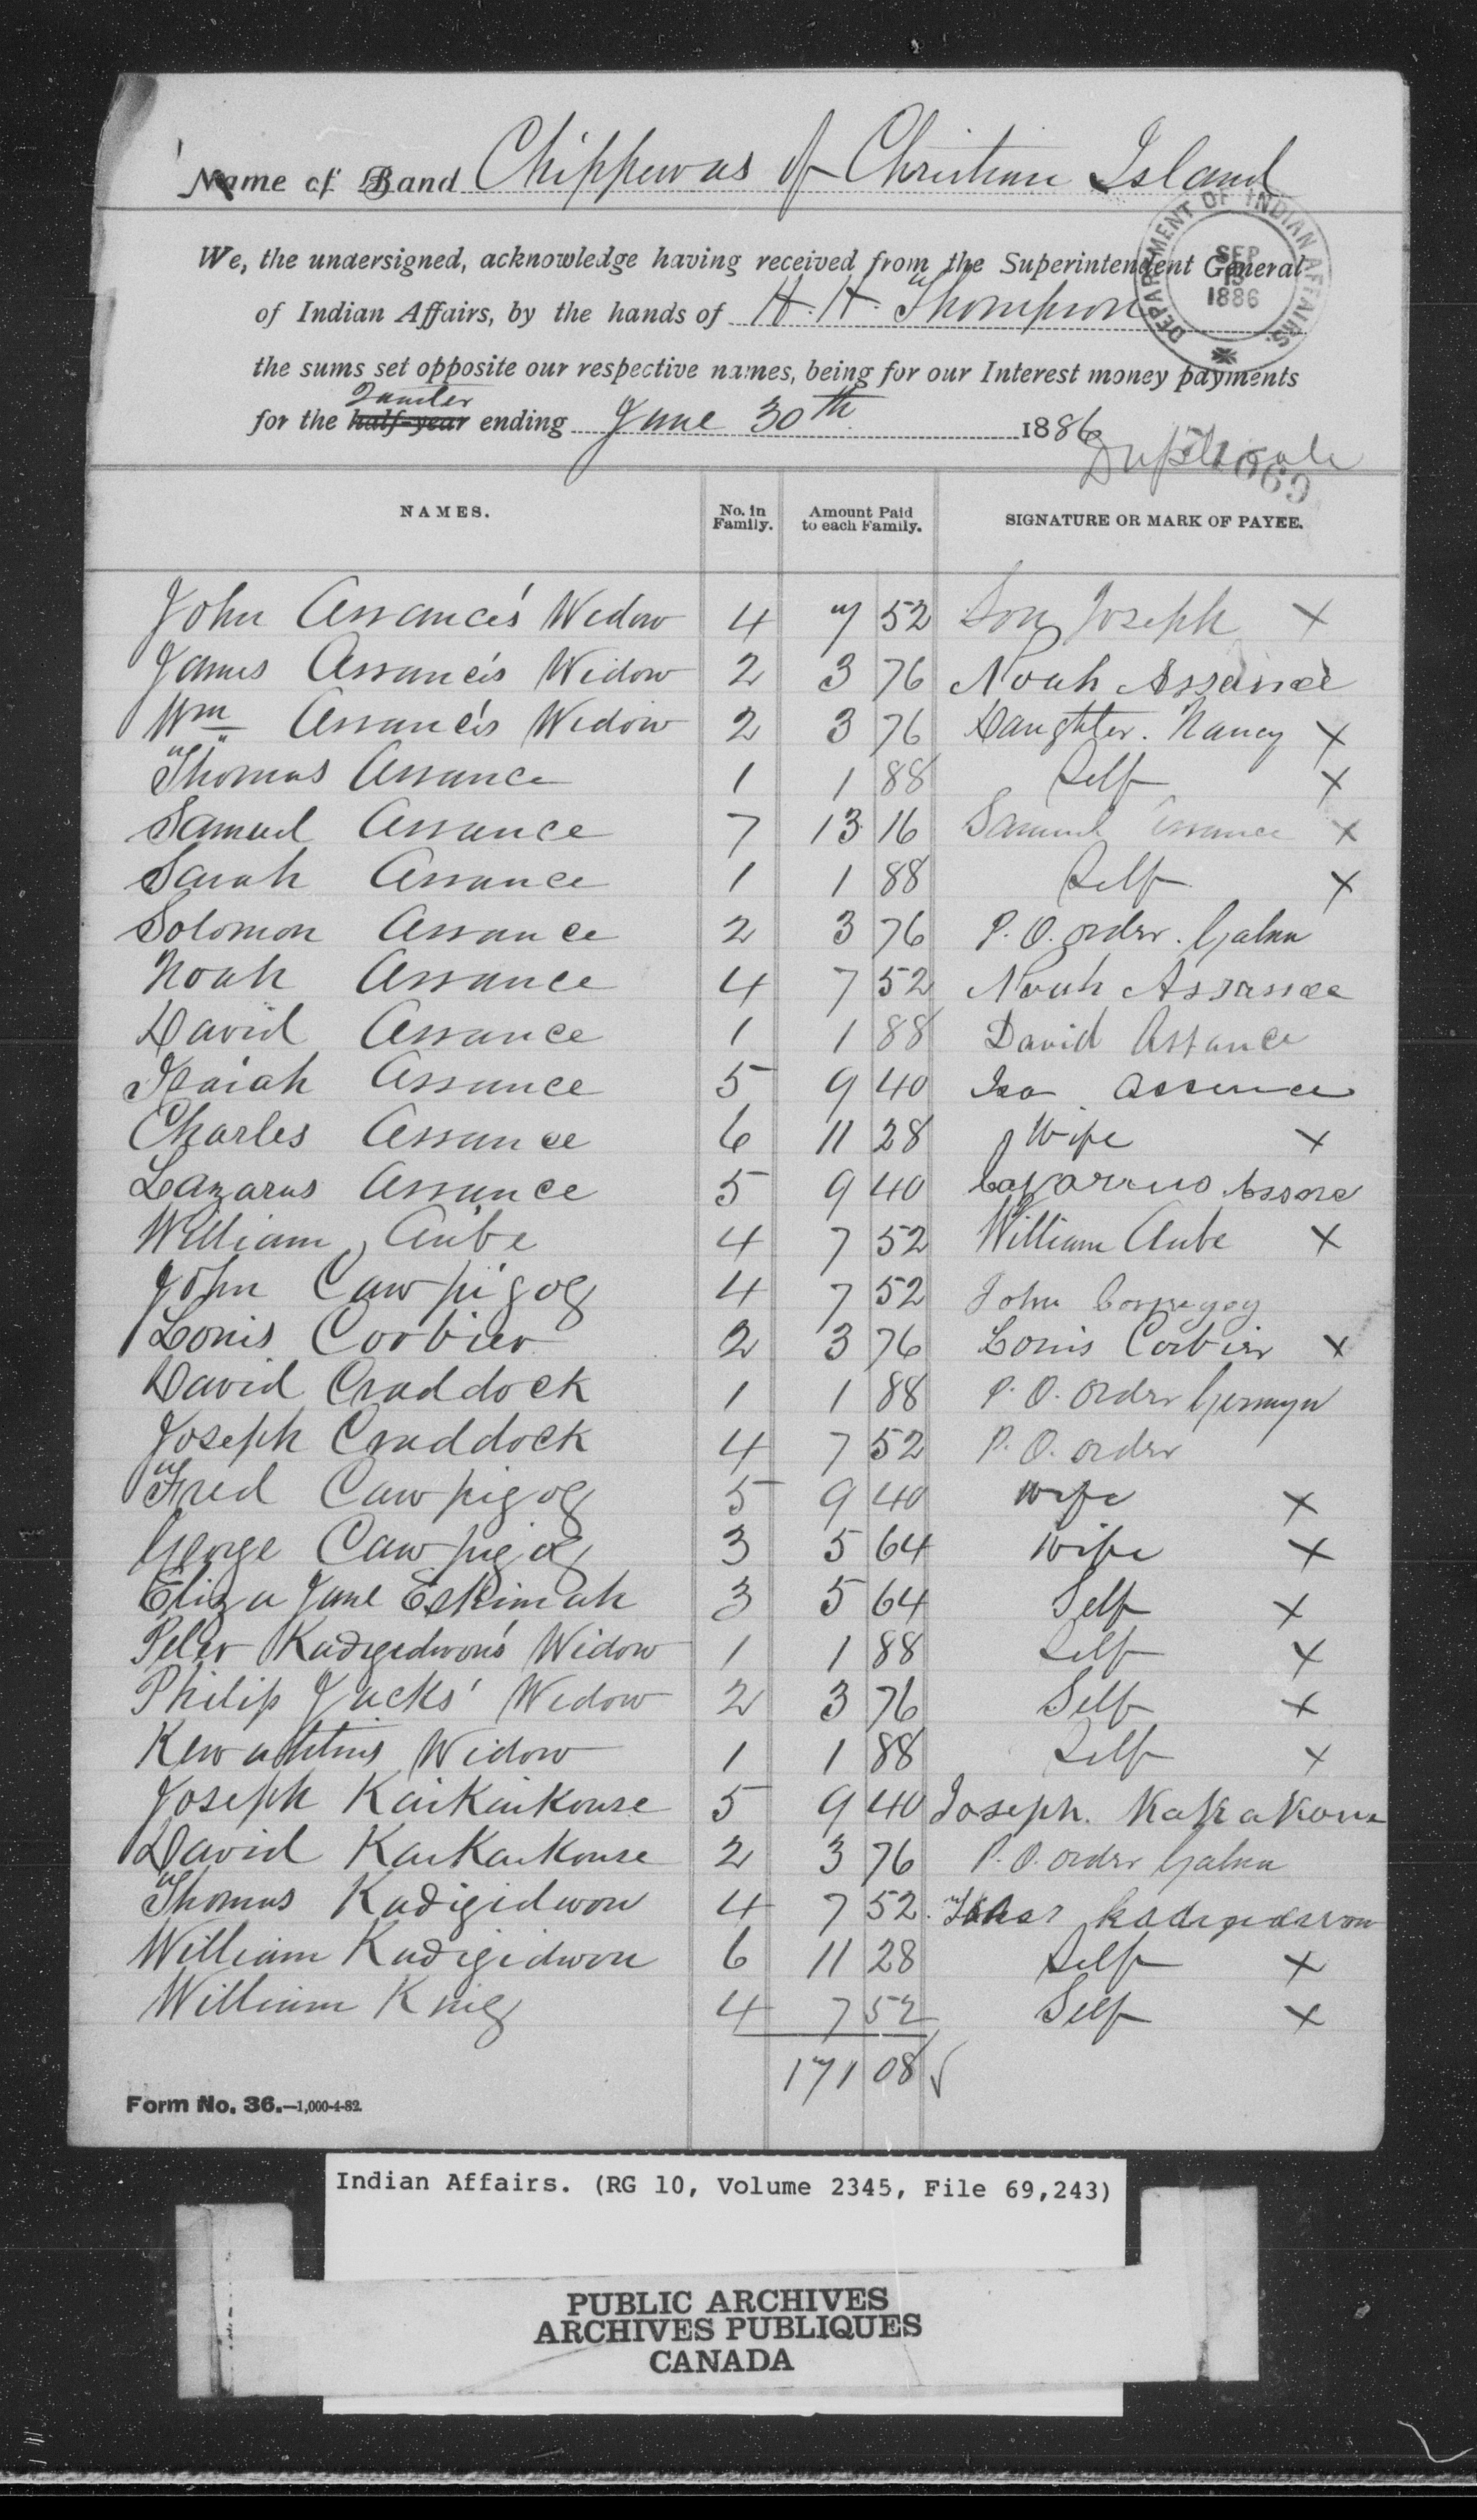 Name of Band Chippewas of Christian Island
DEPARTMENT OF INDIAN AFFAIRS. SEP 13 1886
We, the undersigned, acknowledge having received from the Superintendent General
of Indian Affairs, by the hands of H. H. Thompson
the sums set opposite our respective names, being for our Interest money payments
Quarter
for the half-year ending June 30th 1886
Duplicate
NAMES. No. in Family. Amount Paid to each Family. SIGNATURE OR MARK OF PAYEE.
John Assance's Widow 4 7 52 Son Joseph X
James Assance's Widow 2 3 76 Noah Assance
Wm Assance's Widow 2 3 76 Daughter. Nancy X
Thomas Assance 1 1 88 Self X
Samuel Assance 7 13 16 Samuel Assance X
Sarah Assance 1 1 88 Self X
Solomon Assance 2 3 76 P. O. order.
Noah Assance 4 7 52 Noah Assance
David Assance 1 1 88 David Assance
Isaiah Assance 5 9 40 Isa Assance
Charles Assance 6 11 28 Wife X
Lazarus Assance 5 9 40
William Aube 4 7 52 William Aube X
John Cawpigog 4 7 52 John
Louis Corbier 2 3 76 Louis Corbier X
David Craddock 1 1 88 P. O. Order
Joseph Craddock 4 7 52 P. O. order
Fred Cawpigog 5 9 40 Wife X
George Cawpigog 3 5 64 Wife X
Eliza Jane Eskimah 3 5 64 Self X
Peter Kadigidwon's Widow 1 1 88 Self X
Philip Jacks' Widow 2 3 76 Self X
Widow 1 1 88 Self X
Joseph Kaikaikouse 5 9 40 Joseph.
David Kaikaikouse 2 3 76 P. O. order
Thomas Kadigidwon 4 7 52
William Kadigidwon 6 11 28 Self X
William King 4 7 52 Self X
171 08 √
Form No. 36.—1,000-4-82.
Indian Affairs. (RG 10, Volume 2345, File 69,243)
PUBLIC ARCHIVES
ARCHIVES PUBLIQUES
CANADA